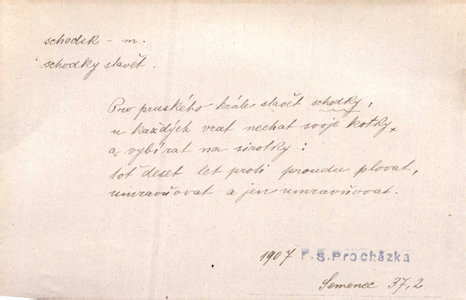 schodek - m.
schodky stavět.
Pro pruského krále stavět schodky,
u každých vrat nechat svoje kotky,
a vybírat na sirotky:
toť deset let proti proudu plovat,
umravňovat a jen umravňovat.
1907 F. S. Procházka
Semenec 37,2